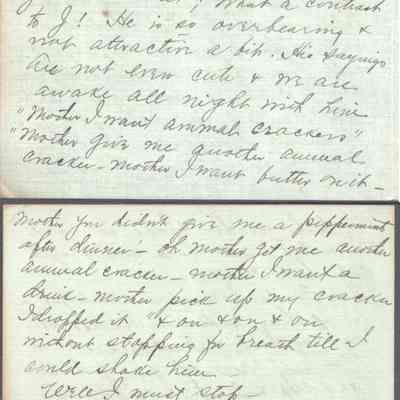 What a contrast
to J! He is so overbearing &
not attractive a bit. His sayings
are not even cute & we are
awake all night with him
"Mother I want animal crackers"
"Mother give me another animal
cracker - mother I want butter on it -
mother you didn't give me a peppermint
after dinner - oh mother get me another
animal cracker - mother I want a
drink - mother pick up my cracker
I dropped it" & on & on & on
without stopping for breath till I
could shake him -
Well I must stop -